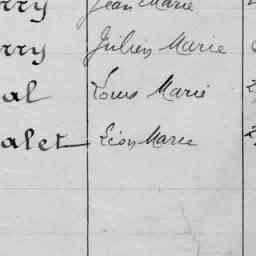 rry Jean Marie
rry Julien Marie
al Louis Marie
alet Léon Marie